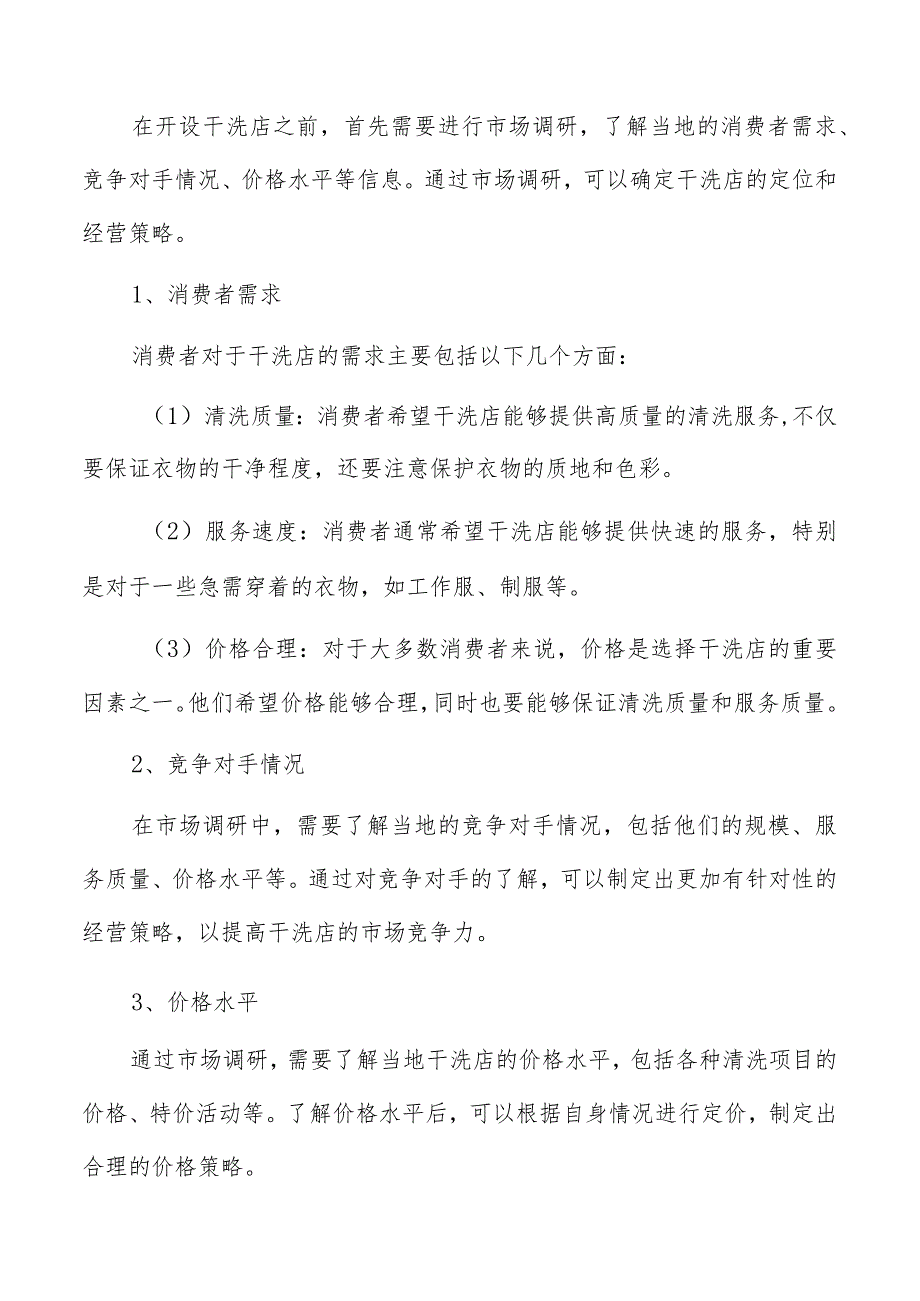 在开设干洗店之前，首先需要进行市场调研，了解当地的消费者需求、
竞争对手情况、价格水平等信息。通过市场调研，可以确定干洗店的定位和
经营策略。
1、消费者需求
消费者对于干洗店的需求主要包括以下几个方面：
（1）清洗质量：消费者希望干洗店能够提供高质量的清洗服务,不仅
要保证衣物的干净程度，还要注意保护衣物的质地和色彩。
（2）服务速度：消费者通常希望干洗店能够提供快速的服务，特别
是对于一些急需穿着的衣物，如工作服、制服等。
（3）价格合理：对于大多数消费者来说，价格是选择干洗店的重要
因素之一。他们希望价格能够合理，同时也要能够保证清洗质量和服务质量。
2、竞争对手情况
在市场调研中，需要了解当地的竞争对手情况，包括他们的规模、服
务质量、价格水平等。通过对竞争对手的了解，可以制定出更加有针对性的
经营策略，以提高干洗店的市场竞争力。
3、价格水平
通过市场调研，需要了解当地干洗店的价格水平，包括各种清洗项目的
价格、特价活动等。了解价格水平后，可以根据自身情况进行定价，制定出
合理的价格策略。